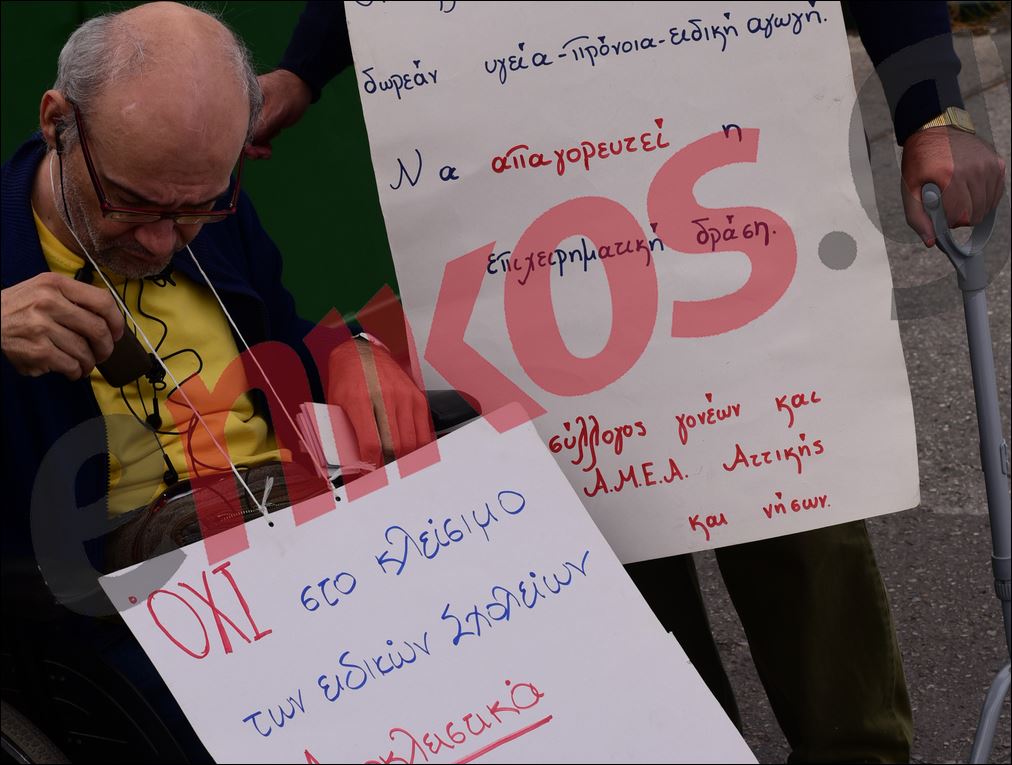 δωρεάν υγεία-πρόνοια-ειδική αγωγή.
Να απαγορευτεί η
επιχειρηματική δράση.
σύλλογος γονέων και
Α.Μ.Ε.Α. Αττικής
και νήσων.
ΌΧΙ στο κλείσιμο
των ειδικών Σχολείων
Αποκλειστικά
enikos.gr